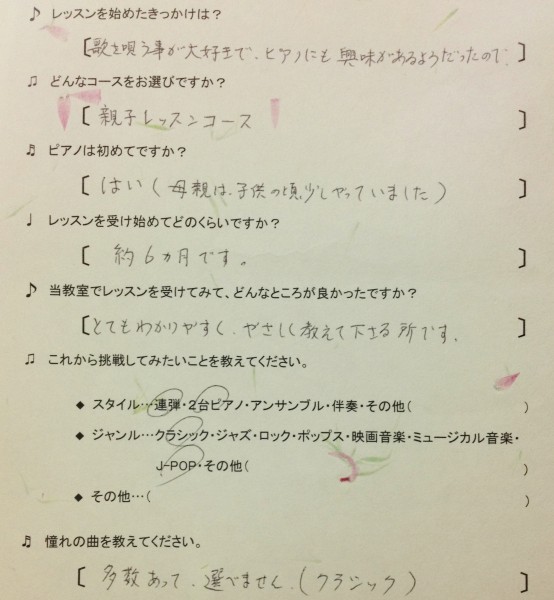 ♪ レッスンを始めたきっかけは？
[歌を唄う事が大好きで、ピアノにも興味があるようだったので。]
♫ どんなコースをお選びですか？
[親子レッスンコース]
♬ ピアノは初めてですか？
[はい(母親は、子供の頃少しやっていました)]
♩ レッスンを受け始めてどのくらいですか？
[約6ヵ月です。]
♪ 当教室でレッスンを受けてみて、どんなところが良かったですか？
[とてもわかりやすく、やさしく教えて下さる所です。]
♫ これから挑戦してみたいことを教えてください。
◆ スタイル…連弾・2台ピアノ・アンサンブル・伴奏・その他( )
◆ ジャンル…クラシック・ジャズ・ロック・ポップス・映画音楽・ミュージカル音楽・
J-POP・その他( )
◆ その他…( )
♬ 憧れの曲を教えてください。
[多数あって、選べません。(クラシック)]